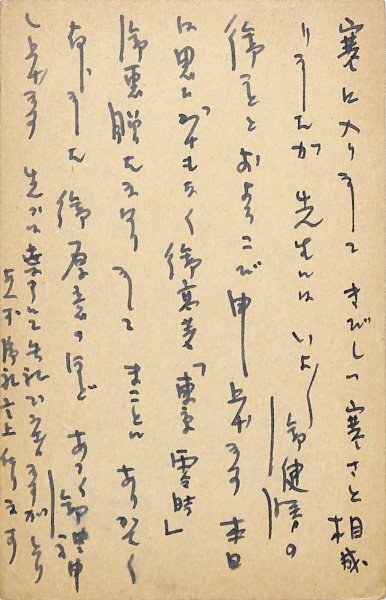 寒に入りましてきびしい寒さと相成
りましたが先生にはいよ〱御健勝の
御ことおよろこび申し上げます 本日
は思ひがけもなく御高著「東京零時」
御恵贈たまはりましてまことにありがたく
存じました 御厚意のほどあつく御礼申
し上げます 先づは葉書にて失礼でございますが
右不取敢御礼言上仕ります